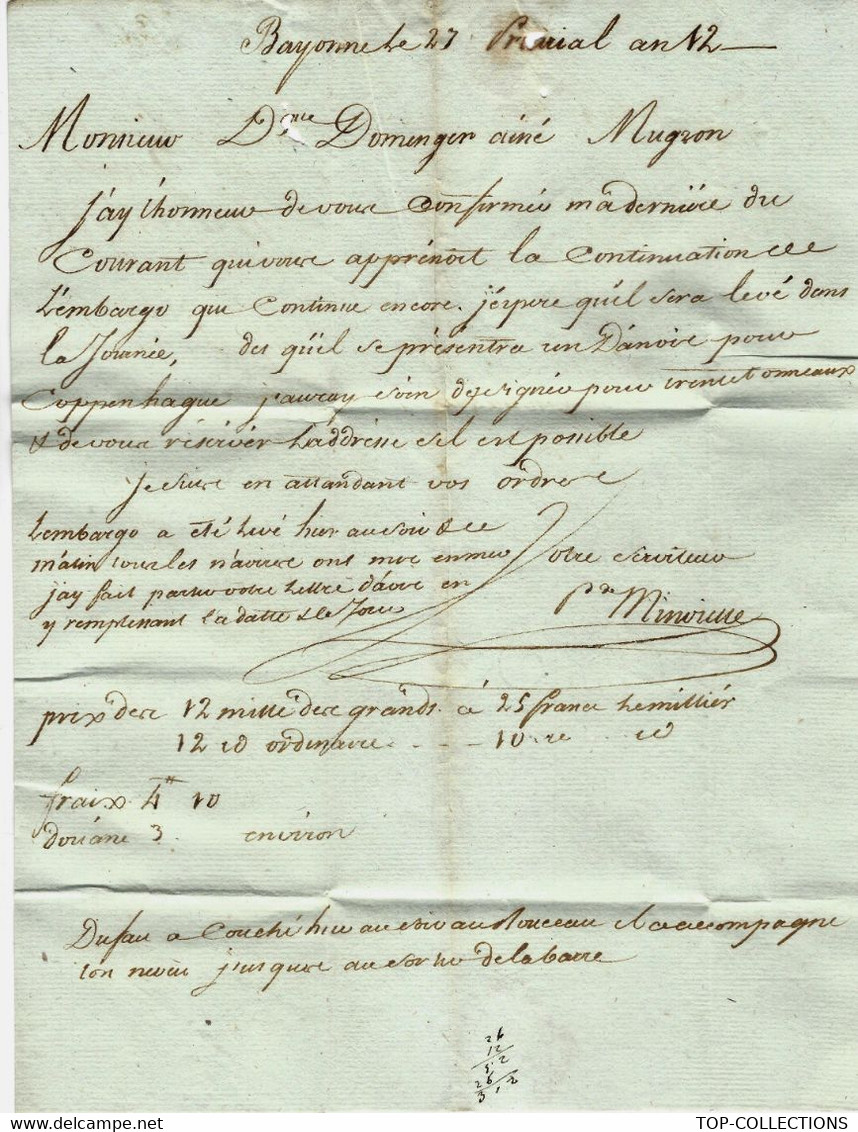 Bayonne le 27 Prairial an 12
Monsieur Dque Domenger ainé Mugron
j'ay l'honneur de vous Confirmer ma derniére du
Courant qui vous apprénoit la Continuation de
L'embargo qui Continue encore. j'éspere qu'il sera levé dans
la Journée, des qu'il se présentra un Danois pour
Coppenhague j'auray soin de signer pour trente tonneaux
& de vous réserver L'addrésse s'il est possible
je suis en attandant vos ordres
Lembargo a eté levé hier au soir & ce
matin tous les navires ont mis en mer
jay fait partir votre Lettre d'avis en
y remplissant la datte & le Jour
Votre serviteur
Pre Minvielle
prix des 12 mille des grands à 25 francs le millier
12 id ordinaire - - - 10 id
fraix 4tt 10
douane 3 environ
Dufau a Couché hier au soir au Boucau il a accompagné
son neveu jusques au dehors de la barre
26
12
52
26
312
TOP-COLLECTIONS